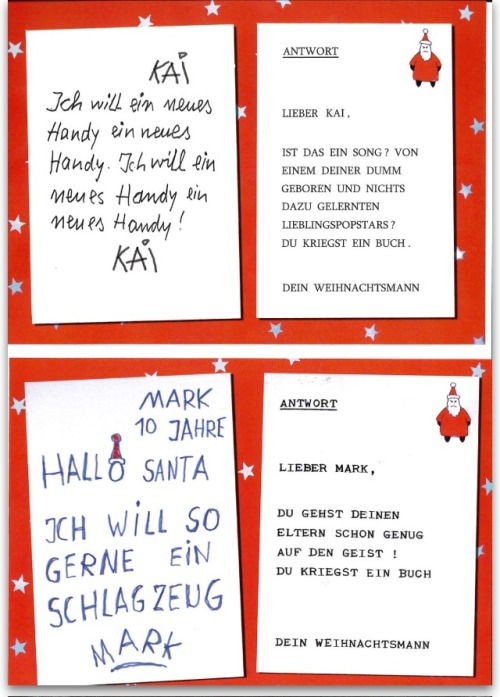 KAI
Ich will ein neues
Handy ein neues
Handy. Ich will ein
neues Handy ein
neues Handy!
KAI
ANTWORT
LIEBER KAI,
IST DAS EIN SONG? VON
EINEM DEINER DUMM
GEBOREN UND NICHTS
DAZU GELERNTEN
LIEBLINGSPOPSTARS?
DU KRIEGST EIN BUCH.
DEIN WEIHNACHTSMANN
MARK
10 JAHRE
HALLO SANTA
ICH WILL SO
GERNE EIN
SCHLAGZEUG
MARK
ANTWORT
LIEBER MARK,
DU GEHST DEINEN
ELTERN SCHON GENUG
AUF DEN GEIST !
DU KRIEGST EIN BUCH
DEIN WEIHNACHTSMANN